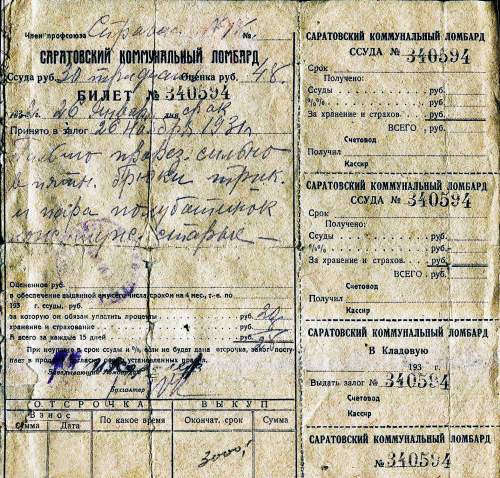 Член профсоюза Страхов №
САРАТОВСКИЙ КОММУНАЛЬНЫЙ ЛОМБАРД
Ссуда руб. 30 тридцать Оценка руб. 48.
БИЛЕТ № 340594
26 января дня срок
Принято в залог 26 ноября 1931
сильно
в пятн. брюки трик.
и пара полубатинок
старые —
Оцененное руб.
в обеспечение выданной ему сего числа сроком на 4 мес., т.-е. по
193 г. ссуды, руб.
за которую он обязан уплатить проценты
хранение и страхование
А всего за каждые 15 дней
При неуплате в срок ссуды и %, если не будет дана отсрочка, залог посту-
пает в продажу согласно особо установленных правил.
Заведывающий Ломбардом
Бухгалтер
ОТСРОЧКА ВЫКУП
Взнос По какое время Окончат. срок Сумма
Сумма Дата
3000,
САРАТОВСКИЙ КОММУНАЛЬНЫЙ ЛОМБАРД
ССУДА № 340594
Срок
Получено:
Ссуды руб.
%/% руб.
За хранение и страхов. руб.
ВСЕГО , руб.
Счетовод
Получил
Кассир
САРАТОВСКИЙ КОММУНАЛЬНЫЙ ЛОМБАРД
ССУДА № 340594
Срок
Получено:
Ссуды руб.
%/% руб.
За хранение и страхов. руб.
ВСЕГО руб.
Счетовод
Получил
Кассир
САРАТОВСКИЙ КОММУНАЛЬНЫЙ ЛОМБАРД
В Кладовую
193 г.
Выдать залог № 340594
Счетовод
Кассир
САРАТОВСКИЙ КОММУНАЛЬНЫЙ ЛОМБАРД
№ 340594